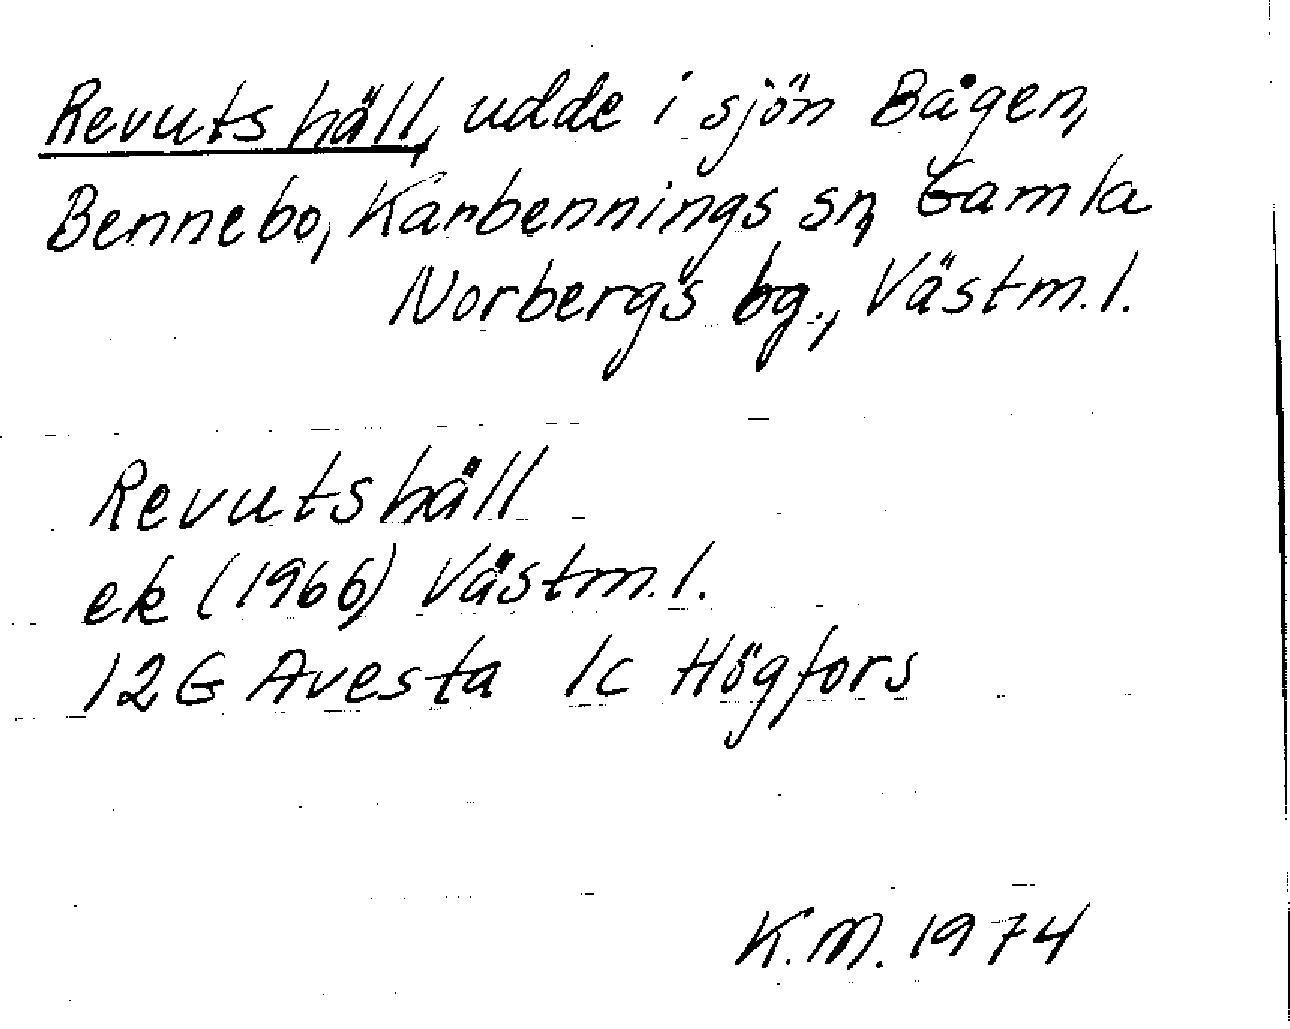 Revutshäll, udde i sjön Bågen,
Bennebo, Karbennings sn, Gamla
Norbergs bg., Västm.l.
Revutshäll
ek (1966) Västm.l.
12G Avesta 1c Högfors
K.M. 1974